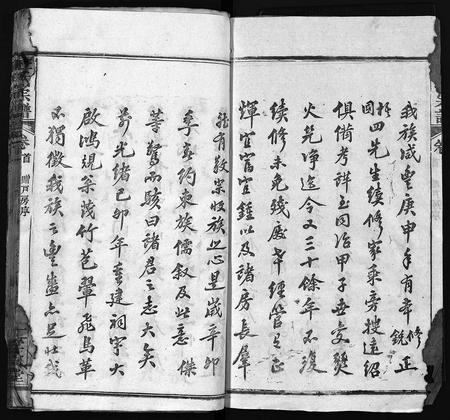 我族咸豐庚申年有 銳修正
四先生續修家乘旁搜遠紹
俱備考詳至同治甲子燹
火淨迄今又三十餘年不復
續修未免殘廢幸經管
輝宜富宜鍾以及諸房長羣
能有敬宗收族之心是歲辛卯
季春約束族儒叙及此意傑
等驚而駭曰諸君之志大矣
前光緒己卯年重建祠宇大
啟鴻規茂竹苞翬飛鳥革
不獨徵我族之豐盛亦足壯我
宗譜
卷首
房序